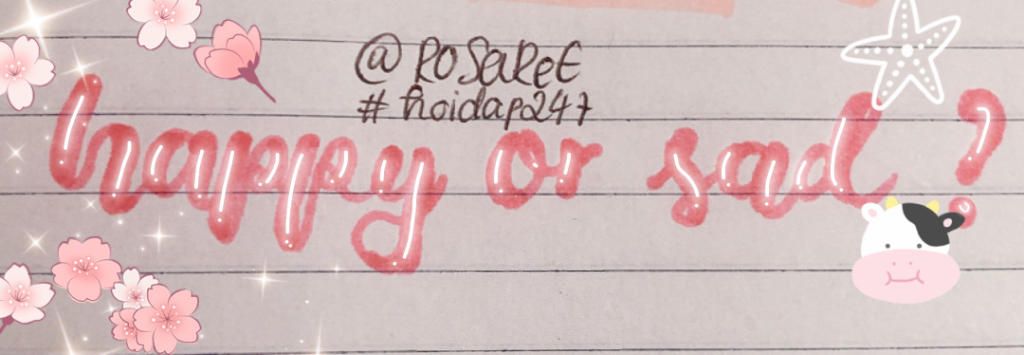 @ROSaReE
#hoidap247
happy or sad ?